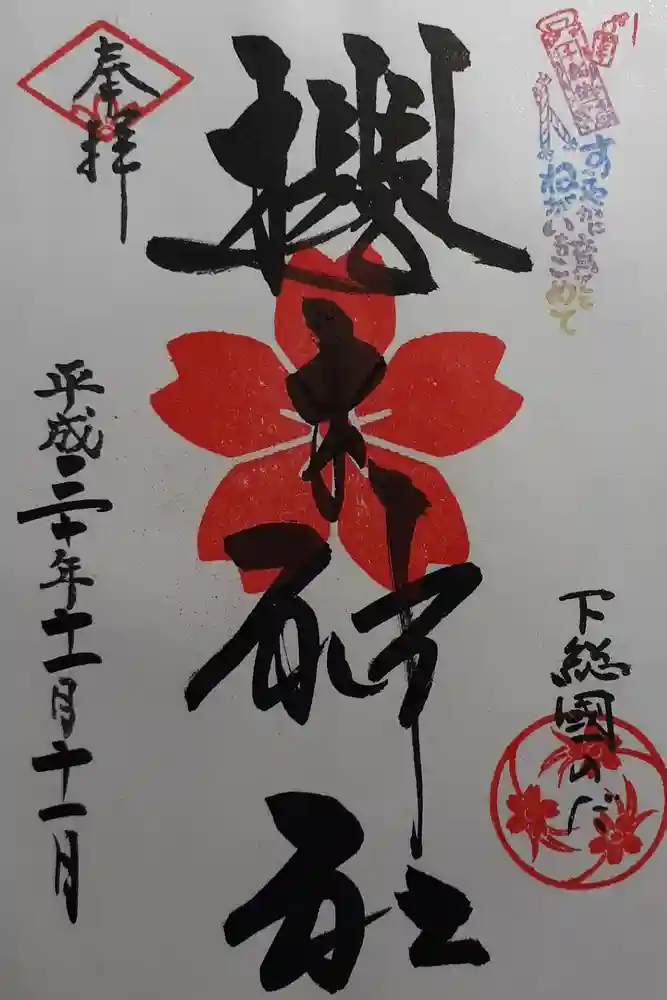 すこやかに育てと
ねがいをこめて
下総國のだ
櫻木神社
奉拝
平成三十年十一月十一日